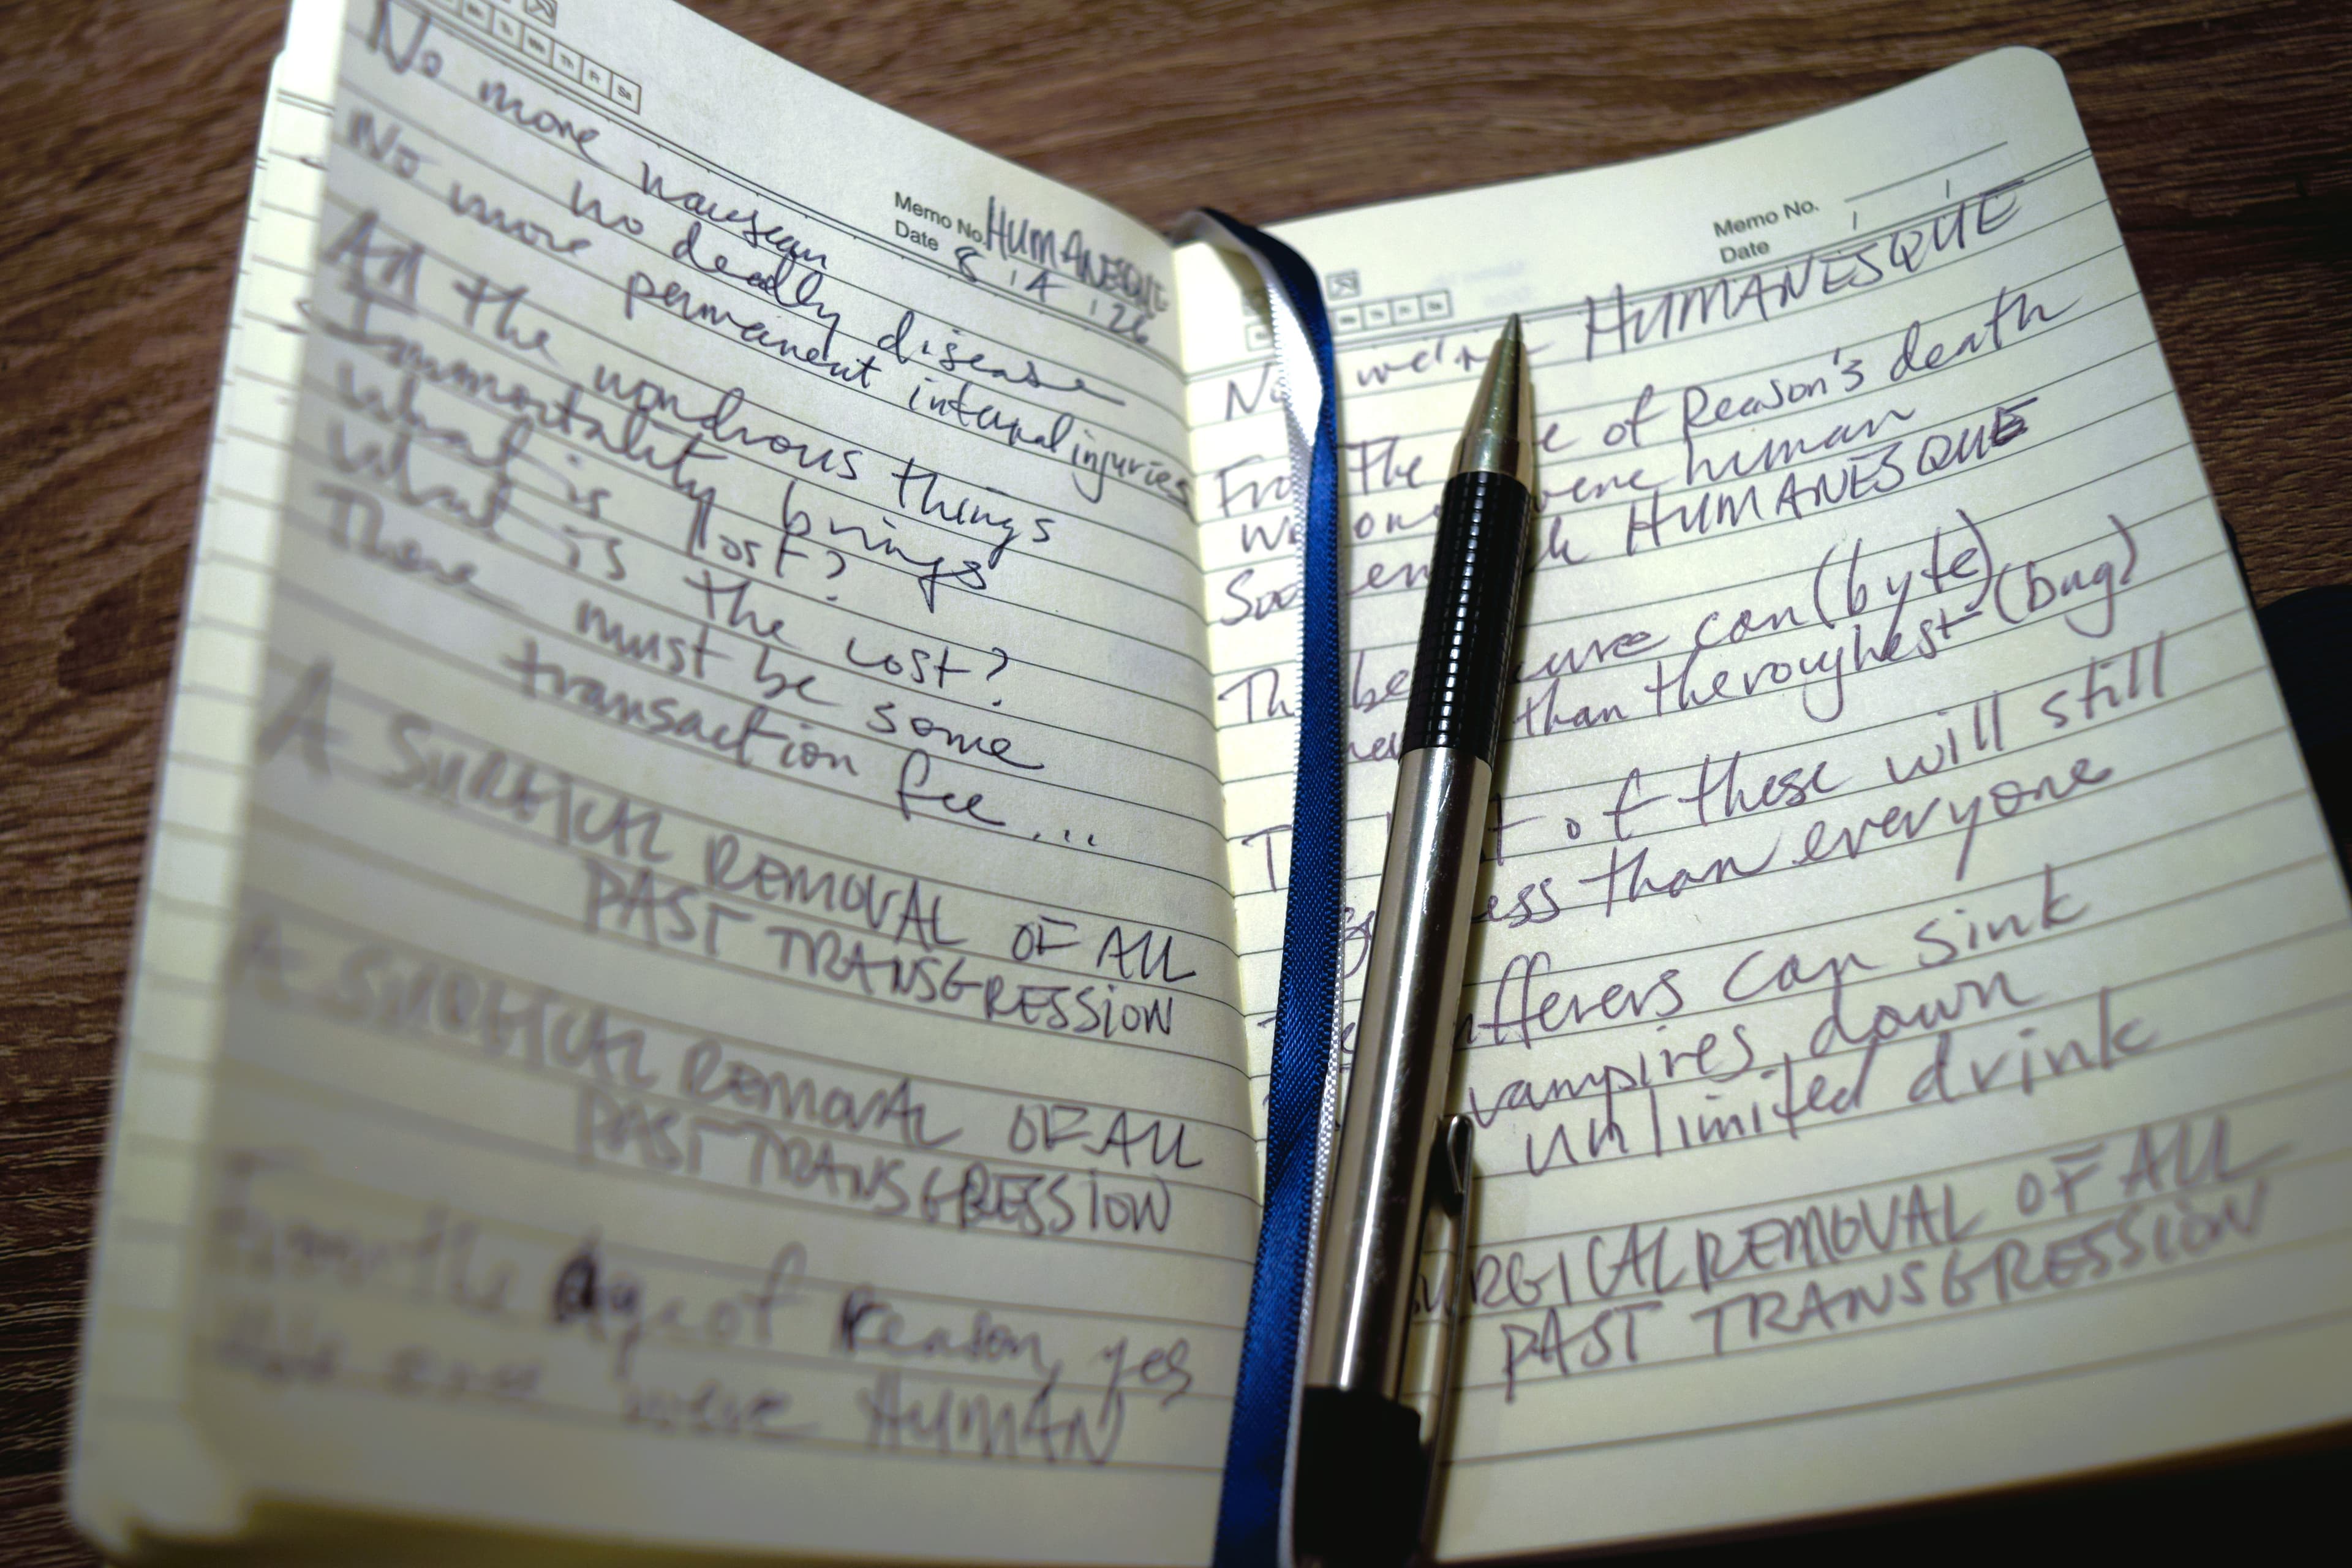 Th Fr Sa
Memo No. HUMANESQUE
Date 8 / 4 / 26
No more nausean
no deadly disease
No more permanent internal injuries
All the wondrous things
Immortality brings
What is lost?
What is the cost?
There must be some
transaction fee...
A SURGICAL REMOVAL OF ALL
PAST TRANSGRESSION
A SURGICAL REMOVAL OF ALL
PAST TRANSGRESSION
From the Age of Reason, yes
We once were HUMAN
Memo No.
Date / /
we're HUMANESQUE
the of Reason's death
human
HUMANESQUE
can (byte)
than the roughest (bug)
of these will still
than everyone
can sink
vampires down
unlimited drink
REMOVAL OF ALL
PAST TRANSGRESSION